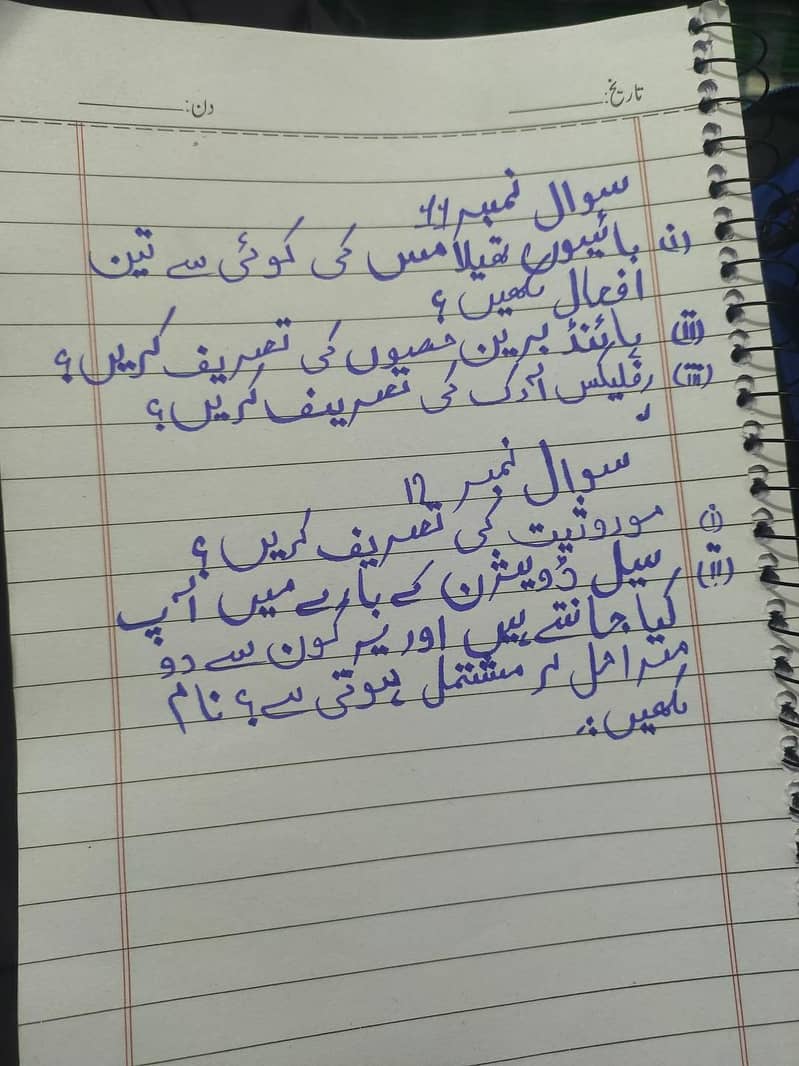 تاریخ: دن:
سوال نمبر 11
(i) ہائپوتھیلامس کی کوئی سے تین
افعال لکھیں؟
(ii) ہائنڈ برین حصوں کی تعریف کریں؟
(iii) رفلیکس آرک کی تعریف کریں؟
سوال نمبر 12
(i) موروثیت کی تعریف کریں؟
(ii) سیل ڈویژن کے بارے میں آپ
کیا جانتے ہیں اور یہ کون سے دو
مراحل پر مشتمل ہوتی ہے؟ نام
لکھیں: